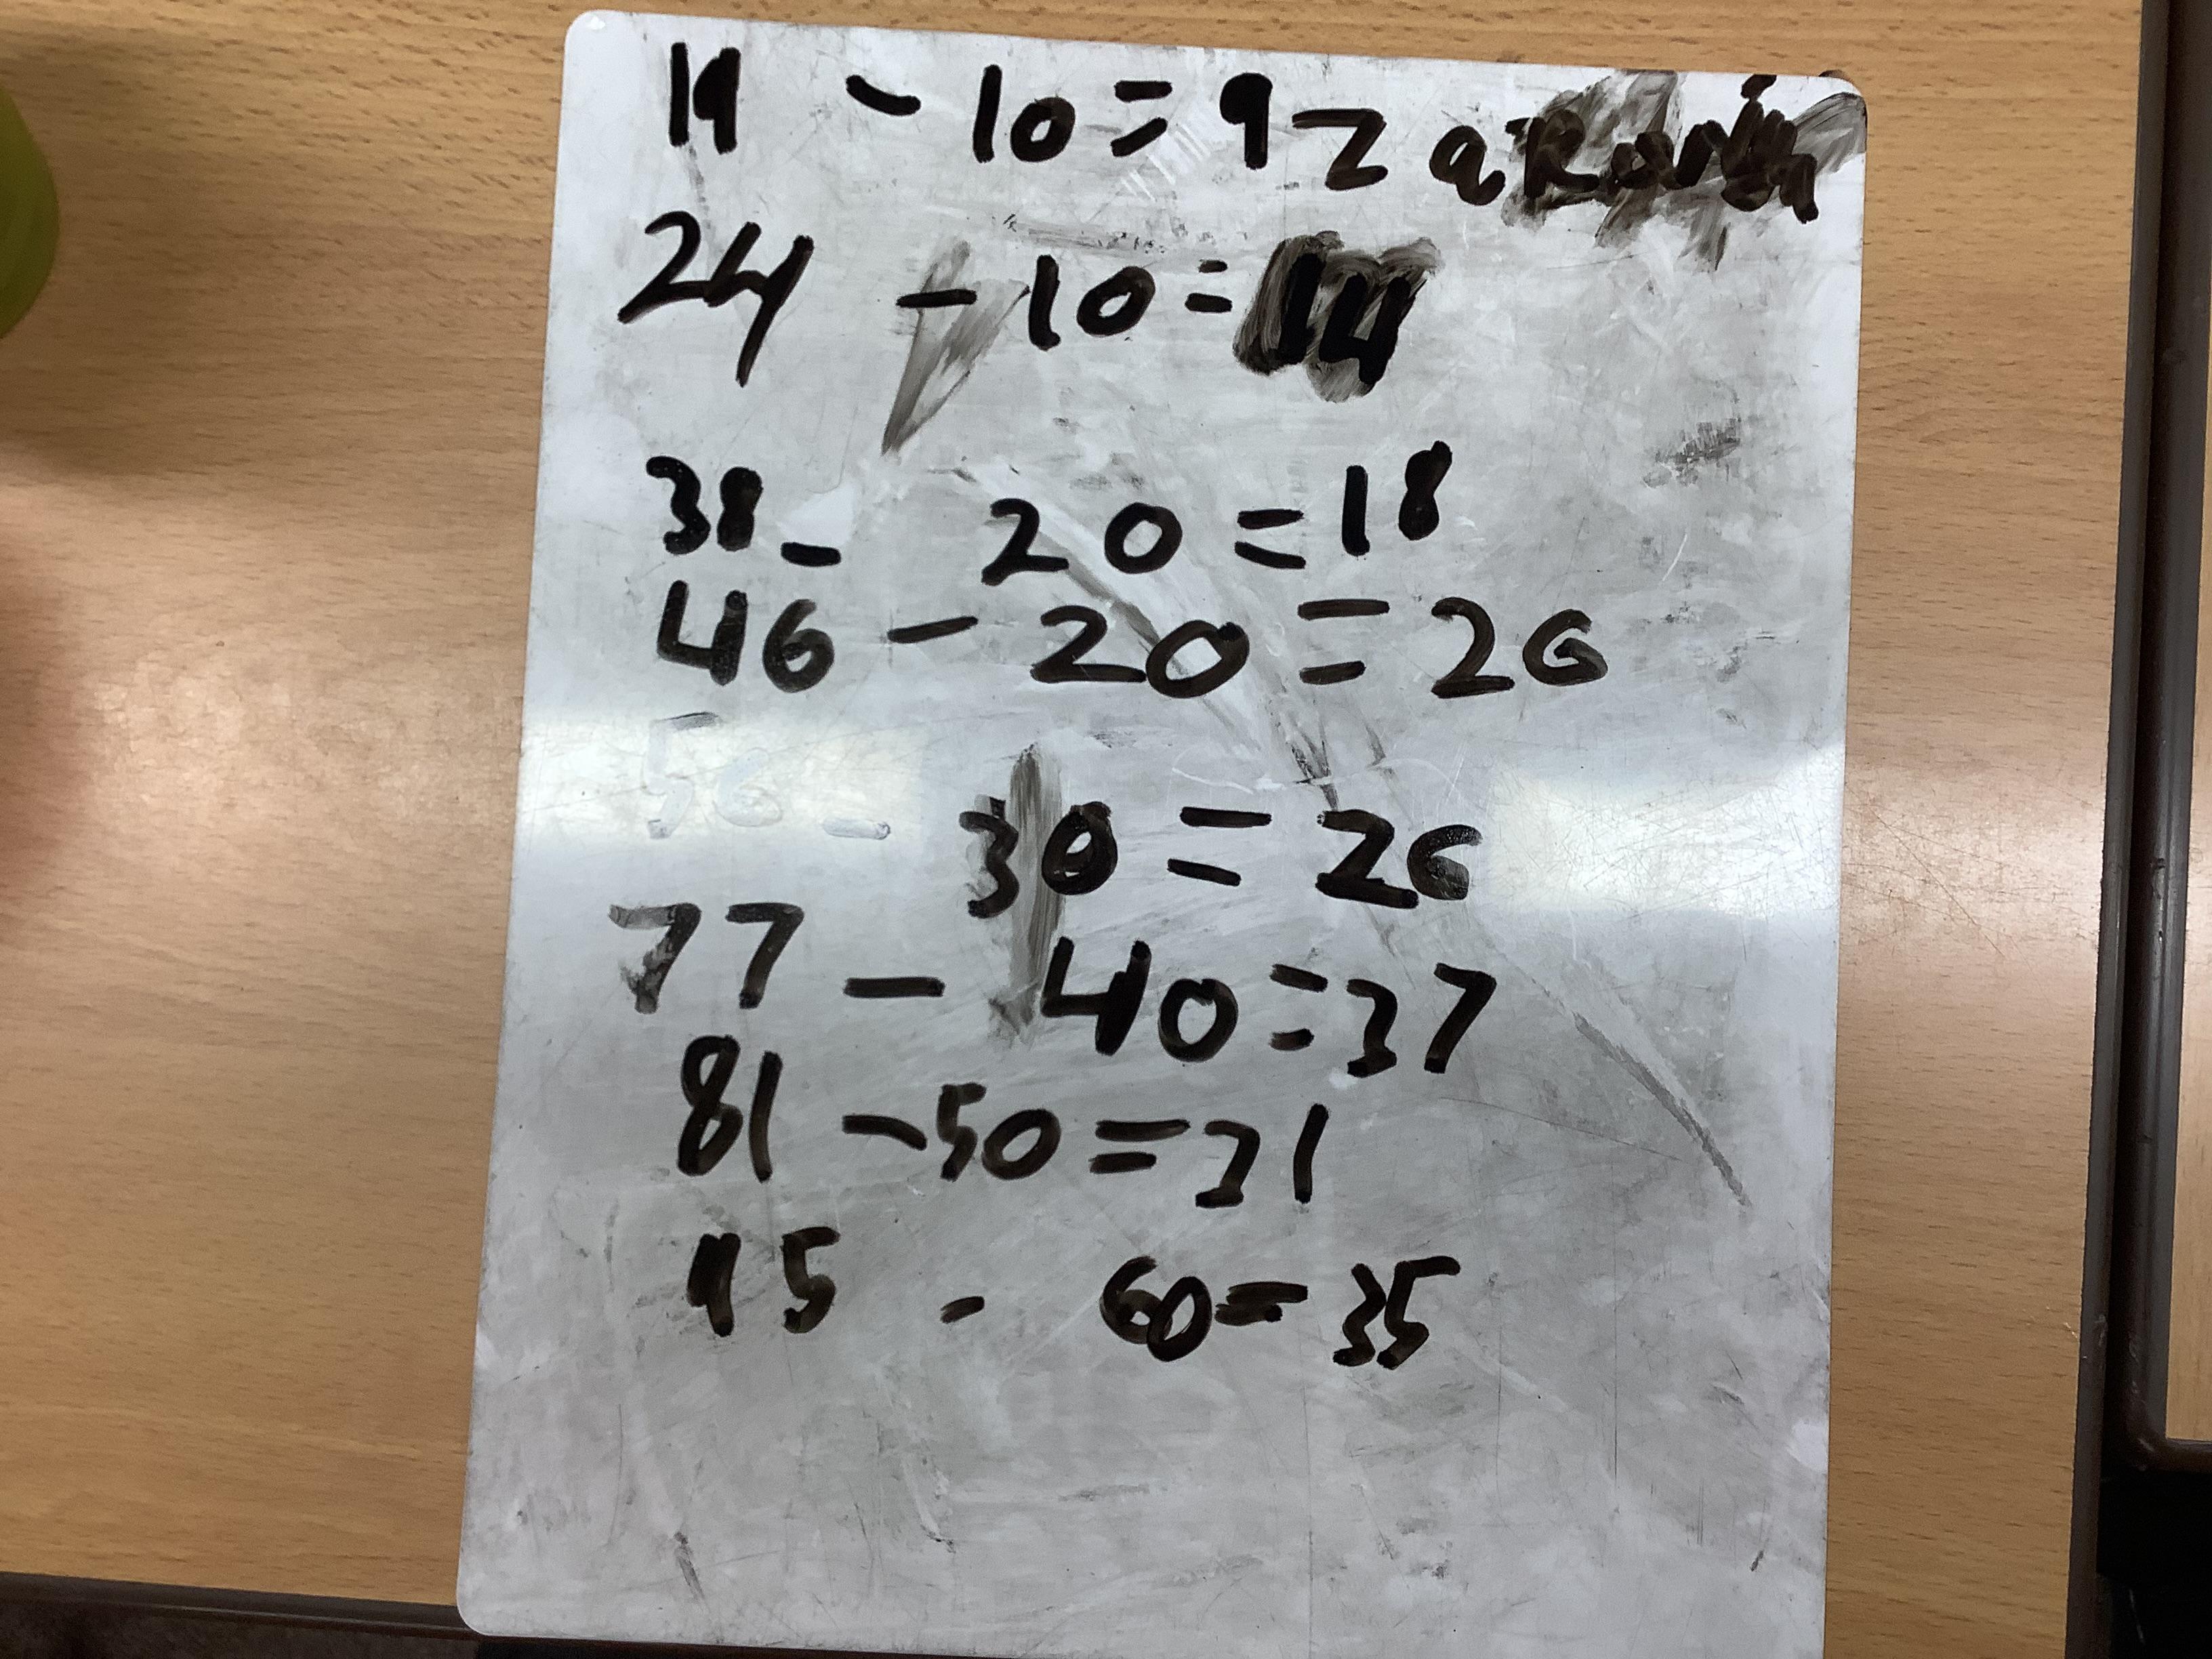 19 - 10 = 9 Zakariya
24 - 10 = 14
38 - 20 = 18
46 - 20 = 26
56 - 30 = 26
77 - 40 = 37
81 - 50 = 31
95 - 60 = 35